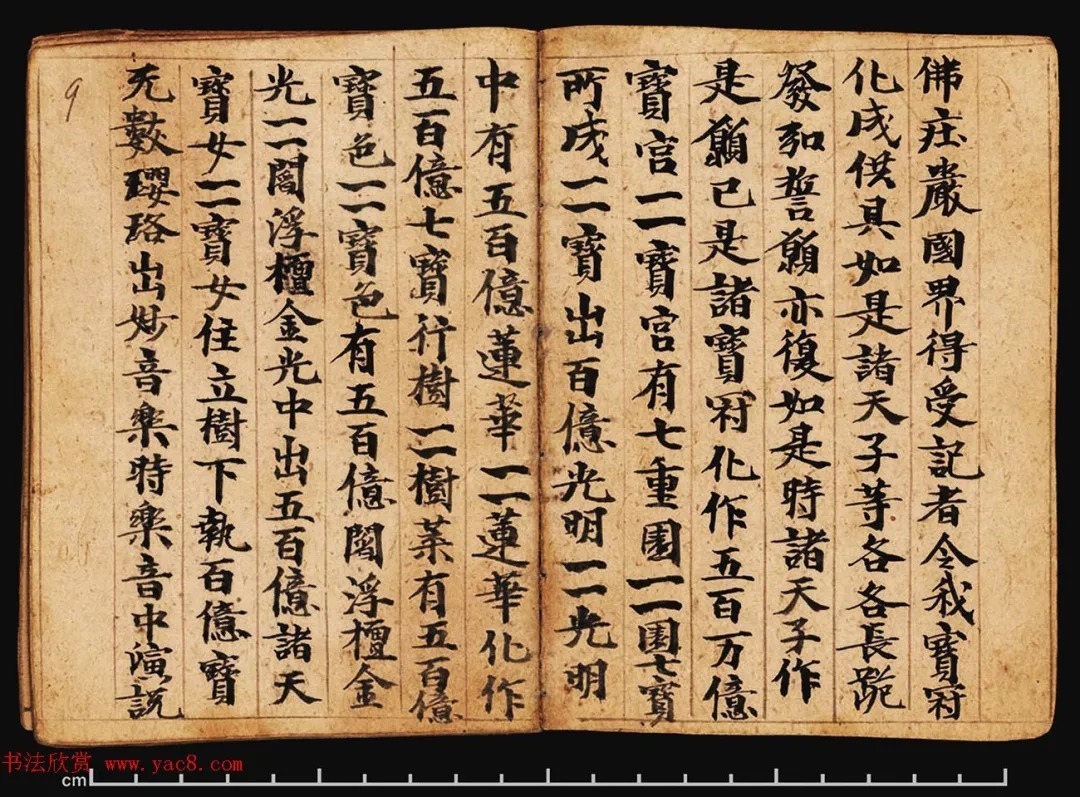 佛莊嚴國界得受記者令我寶冠
化成供具如是諸天子等各各長跪
發弘誓願亦復如是時諸天子作
是願已是諸寶冠化作五百万億
寶宮一一寶宮有七重園一一園七寶
所成一一寶出百億光明一一光明
中有五百億蓮華一一蓮華化作
五百億七寶行樹一一樹葉有五百億
寶色一一寶色有五百億閻浮檀金
光一一閻浮檀金光中出五百億諸天
寶女一一寶女住立樹下執百億寶
无數瓔珞出妙音樂時樂音中演説
9
书法欣赏 www.yac8.com
cm